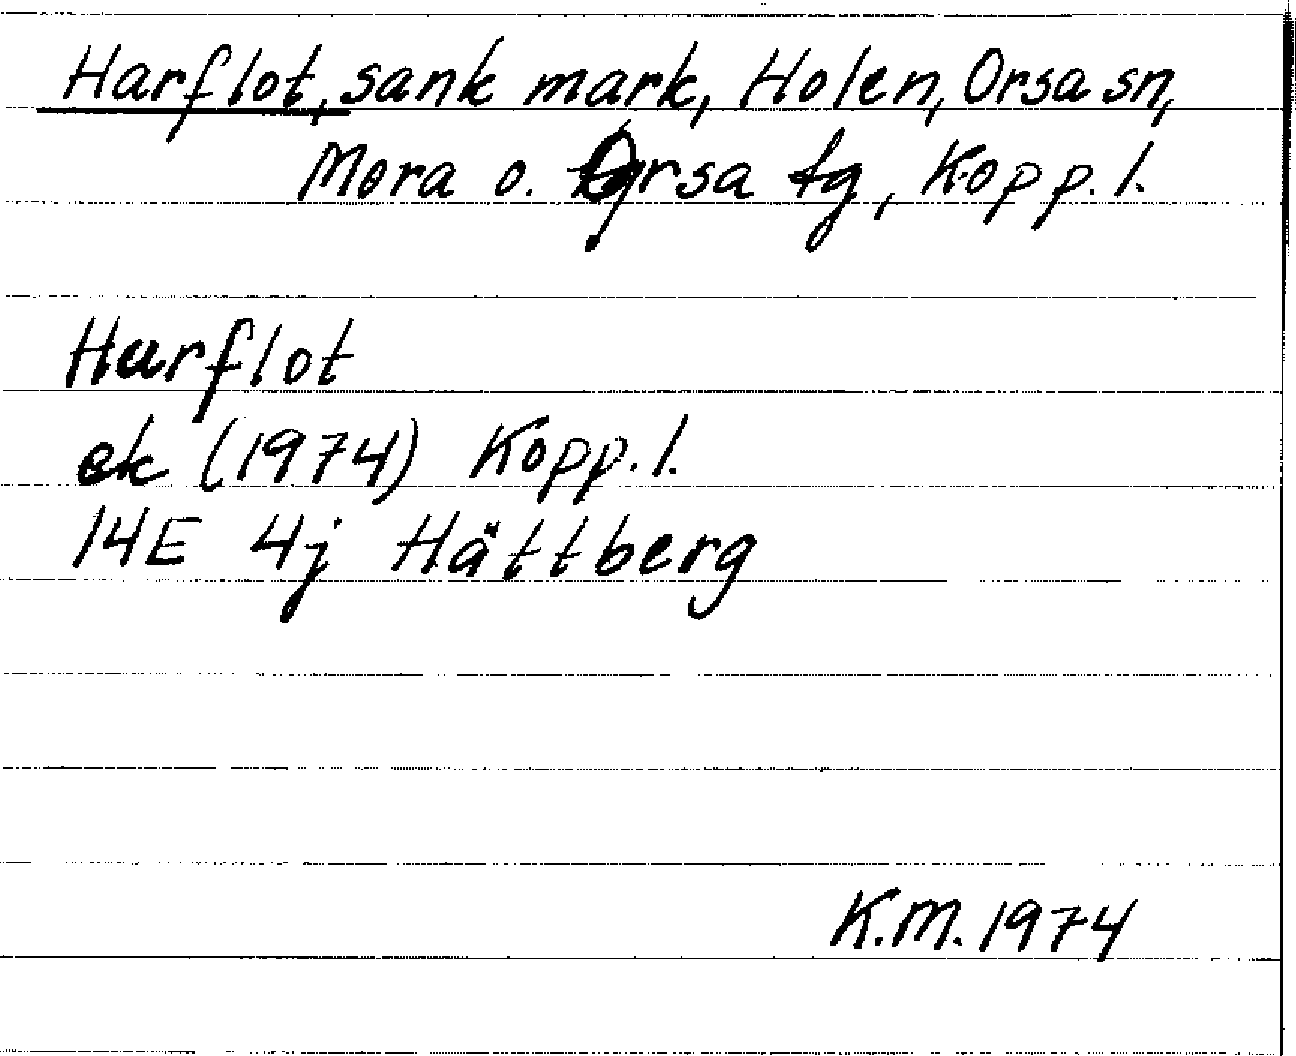 Harflot, sank mark, Holen, Orsa sn,
Mora o. Orsa tg, Kopp. l.
Harflot
ek (1974) Kopp. l.
14E 4j Hättberg
K.M. 1974